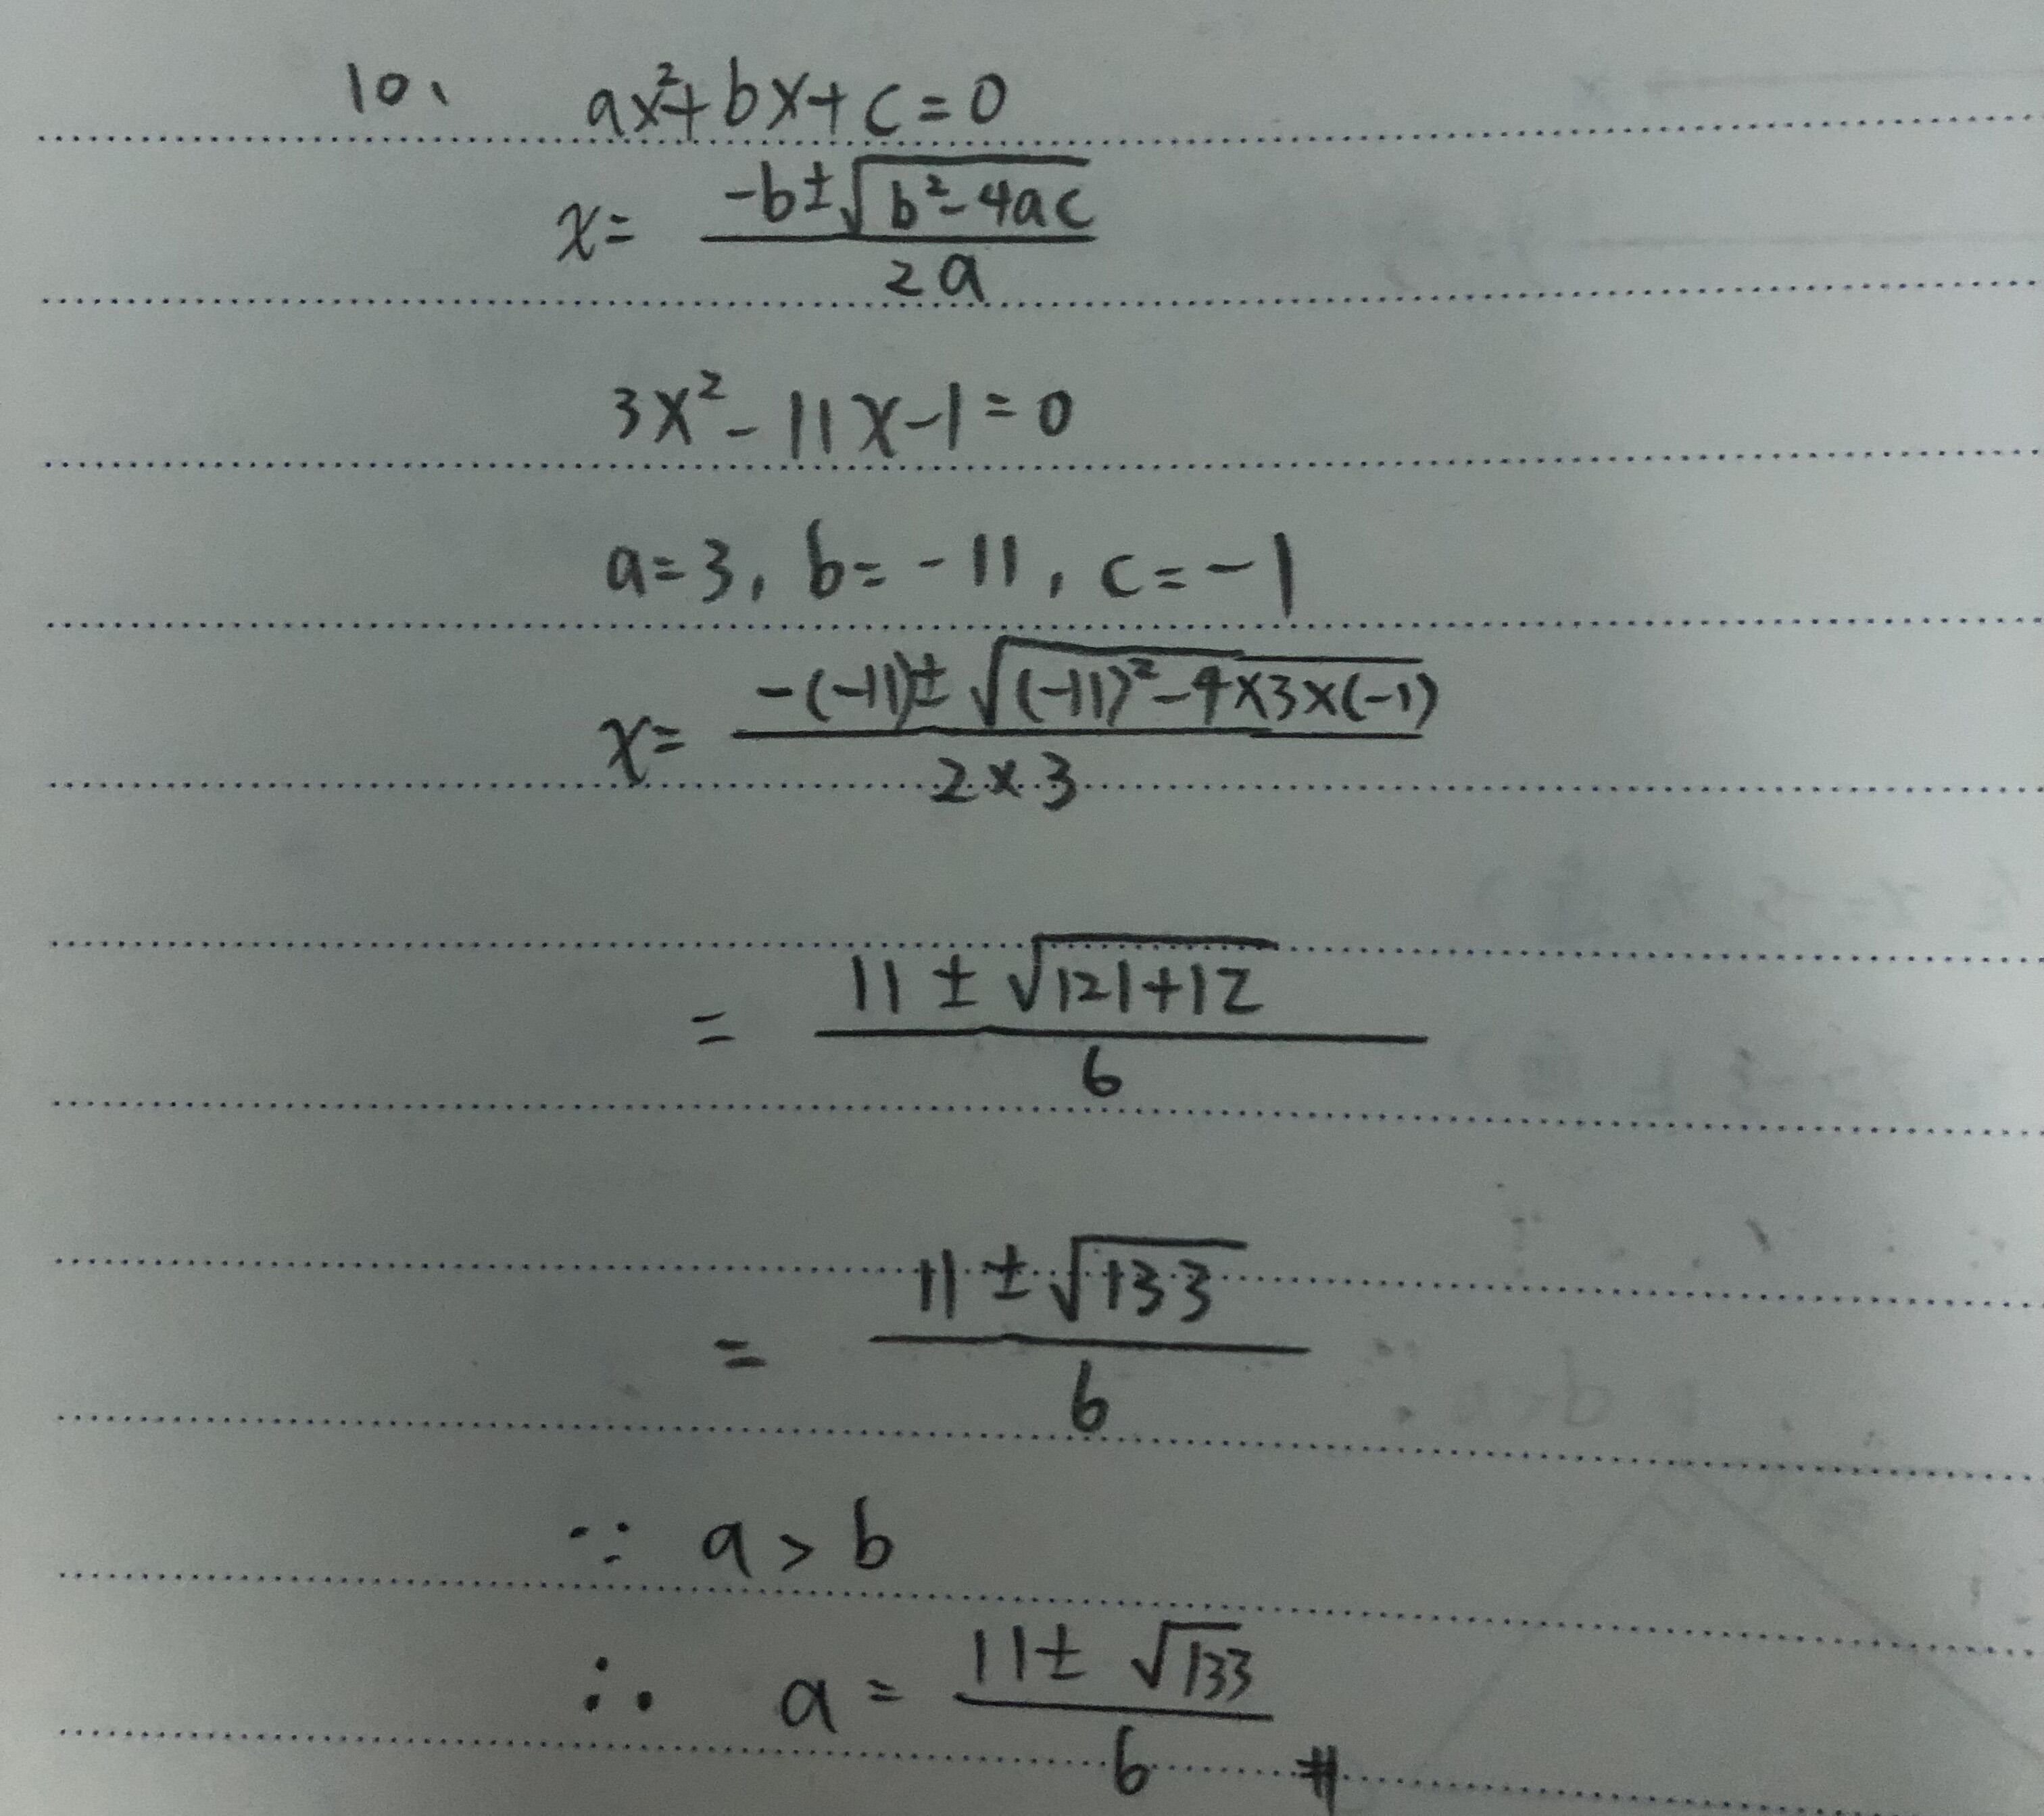 10、 ax²+bx+c=0
x= (-b±√(b²-4ac))/(2a)
3x²-11x-1=0
a=3, b=-11, c=-1
x= (-(-11)±√((-11)²-4×3×(-1)))/(2×3)
= (11±√(121+12))/6
= (11±√133)/6
∵ a>b
∴ a= (11±√133)/6 #